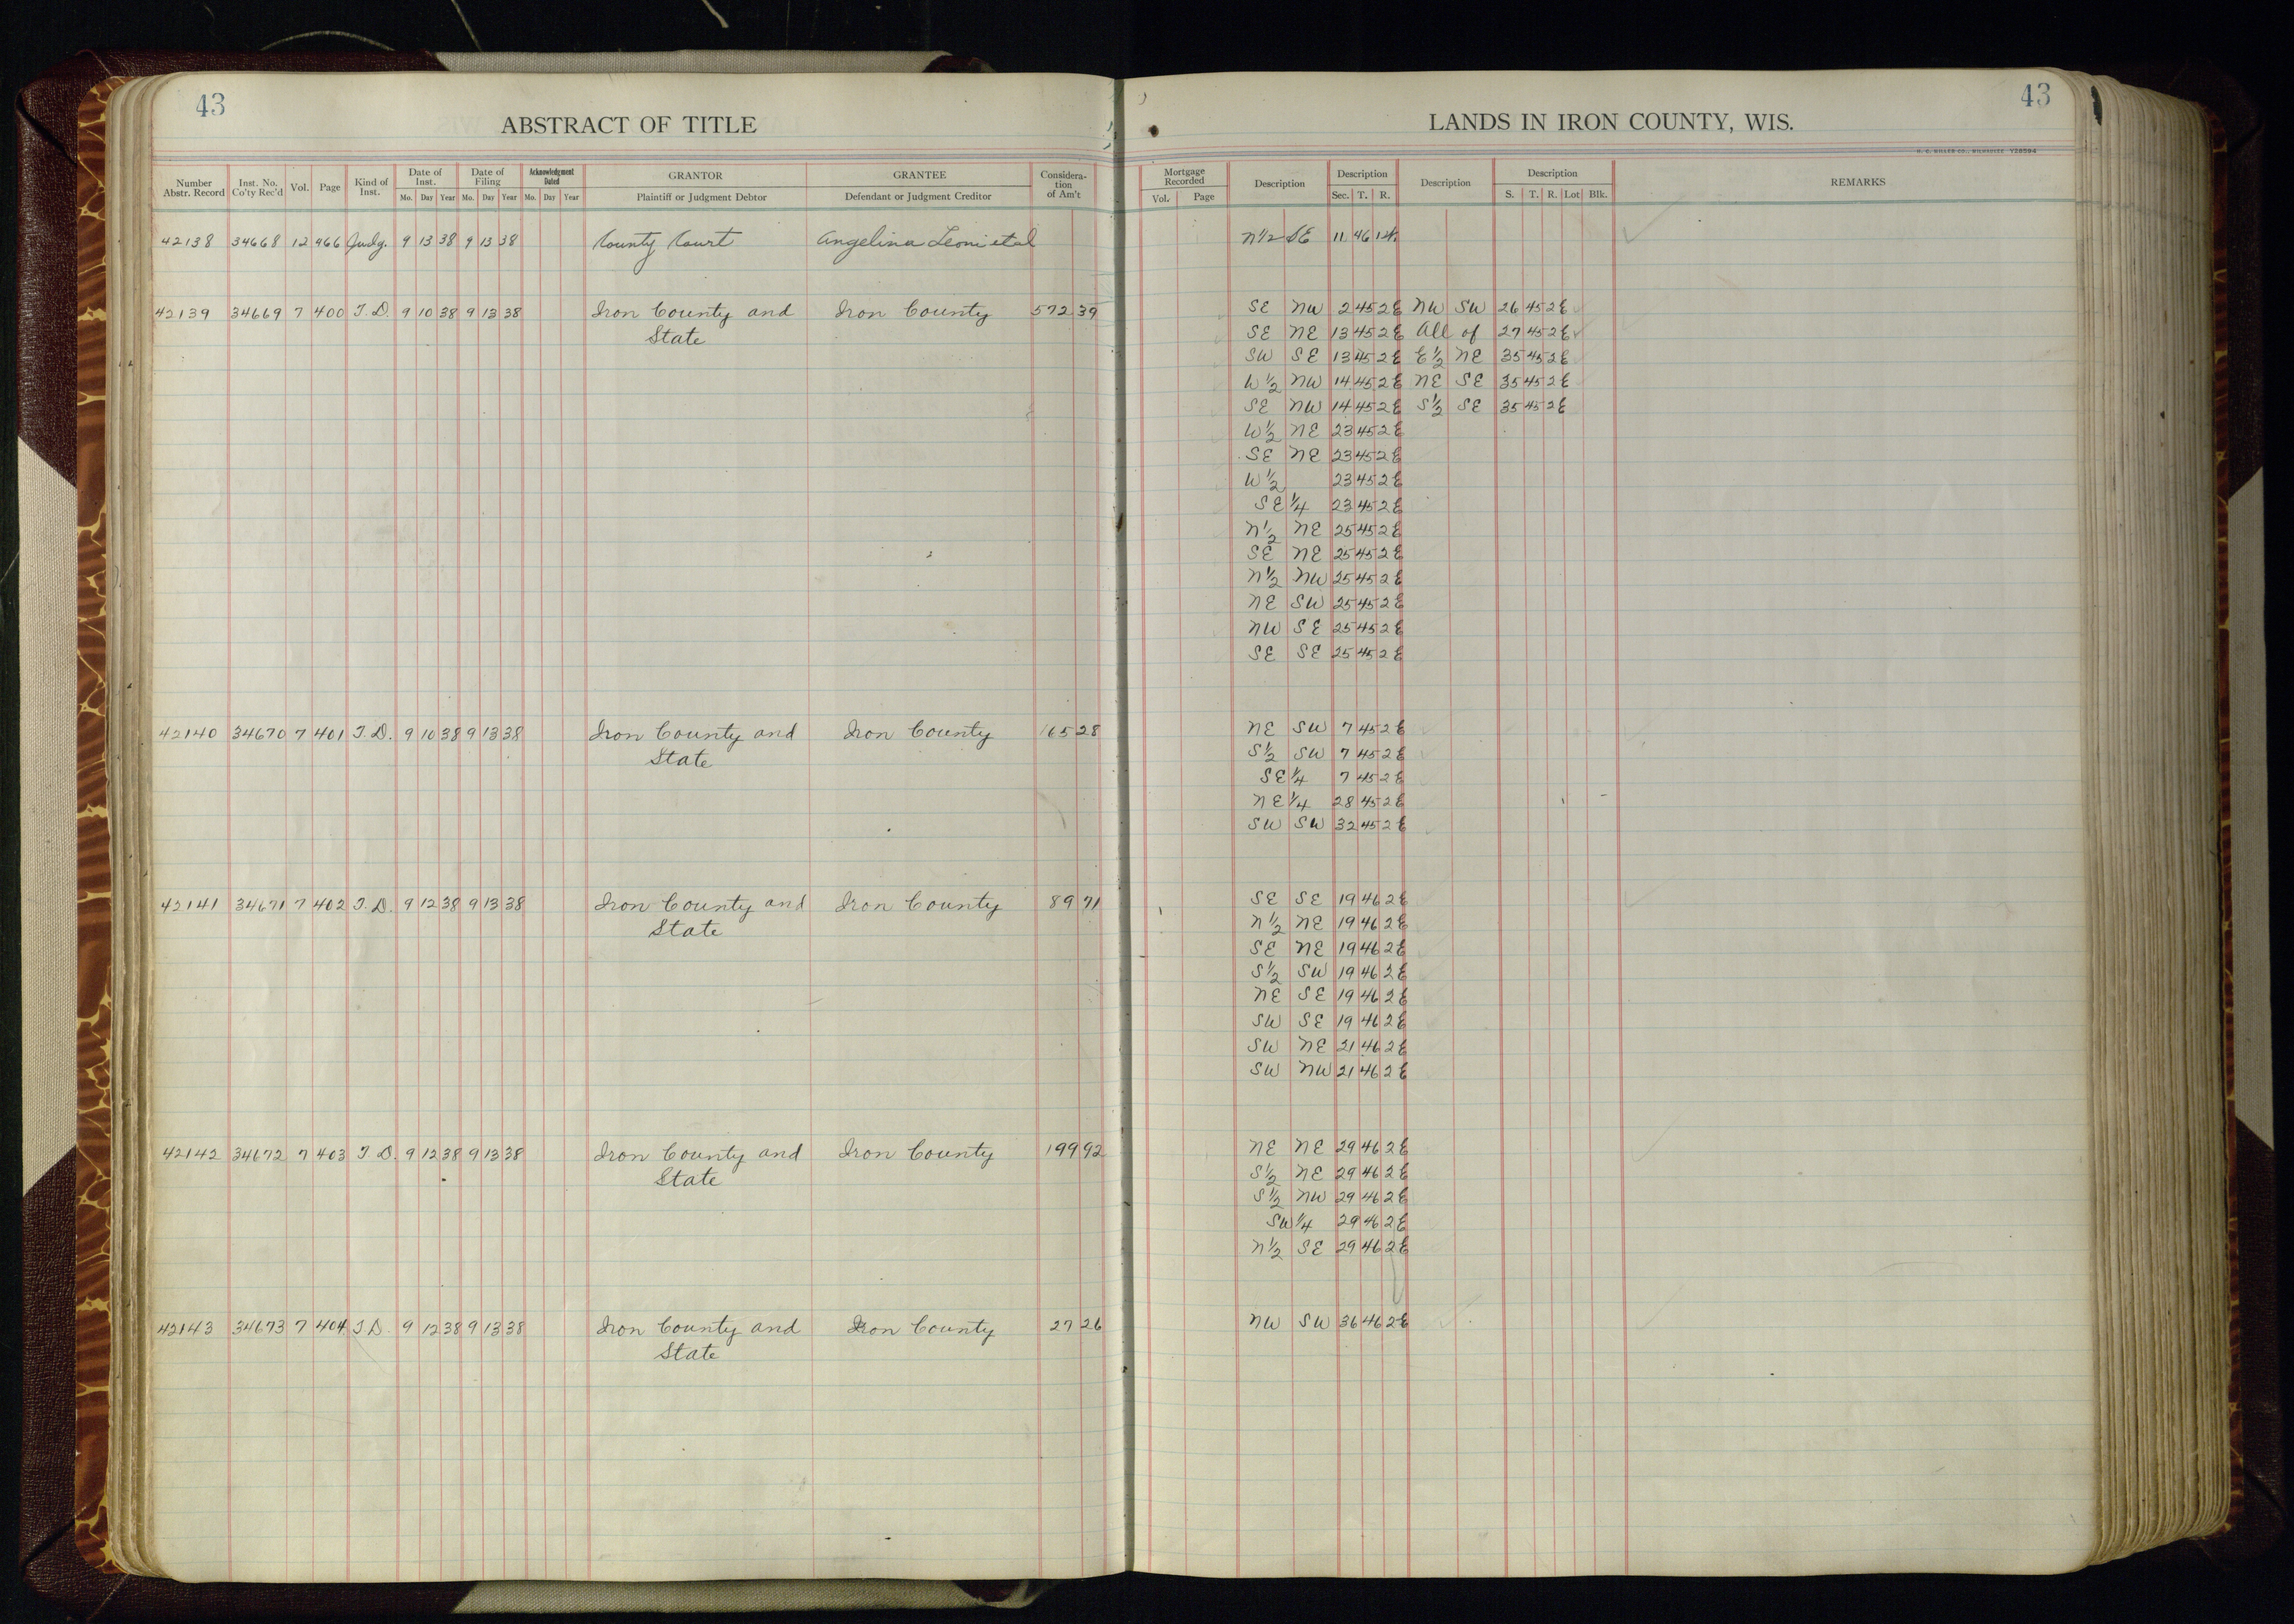 43
ABSTRACT OF TITLE
LANDS IN IRON COUNTY, WIS.
43
H. C. MILLER CO., MILWAUKEE Y28594
Number Abstr. Record Inst. No. Co'ty Rec'd Vol. Page Kind of Inst. Date of Inst. Mo. Day Year Date of Filing Mo. Day Year Acknowledgment Dated Mo. Day Year GRANTOR Plaintiff or Judgment Debtor GRANTEE Defendant or Judgment Creditor Considera-tion of Am't Mortgage Recorded Vol. Page Description Description Sec. T. R. Description Description S. T. R. Lot Blk. REMARKS
42138 34668 12 466 Judg. 9 13 38 9 13 38 County Court Angelina Leoni et al N½ SE 11 46 1
42139 34669 7 400 T.D. 9 10 38 9 13 38 Iron County and Iron County 572 39 SE NW 2 45 2E NW SW 26 45 2E
State SE NE 13 45 2E All of 27 45 2E
SW SE 13 45 2E E½ NE 35 45 2E
W½ NW 14 45 2E NE SE 35 45 2E
SE NW 14 45 2E S½ SE 35 45 2E
W½ NE 23 45 2E
SE NE 23 45 2E
W½ 23 45 2E
SE¼ 23 45 2E
N½ NE 25 45 2E
SE NE 25 45 2E
N½ NW 25 45 2E
NE SW 25 45 2E
NW SE 25 45 2E
SE SE 25 45 2E
42140 34670 7 401 T.D. 9 10 38 9 13 38 Iron County and Iron County 165 28 NE SW 7 45 2E
State S½ SW 7 45 2E
SE¼ 7 45 2E
NE¼ 28 45 2E
SW SW 32 45 2E
42141 34671 7 402 T.D. 9 12 38 9 13 38 Iron County and Iron County 89 71 SE SE 19 46 2E
State N½ NE 19 46 2E
SE NE 19 46 2E
S½ SW 19 46 2E
NE SE 19 46 2E
SW SE 19 46 2E
SW NE 21 46 2E
SW NW 21 46 2E
42142 34672 7 403 T.D. 9 12 38 9 13 38 Iron County and Iron County 199 92 NE NE 29 46 2E
State S½ NE 29 46 2E
S½ NW 29 46 2E
SW¼ 29 46 2E
N½ SE 29 46 2E
42143 34673 7 404 T.D. 9 12 38 9 13 38 Iron County and Iron County 27 26 NW SW 36 46 2E
State